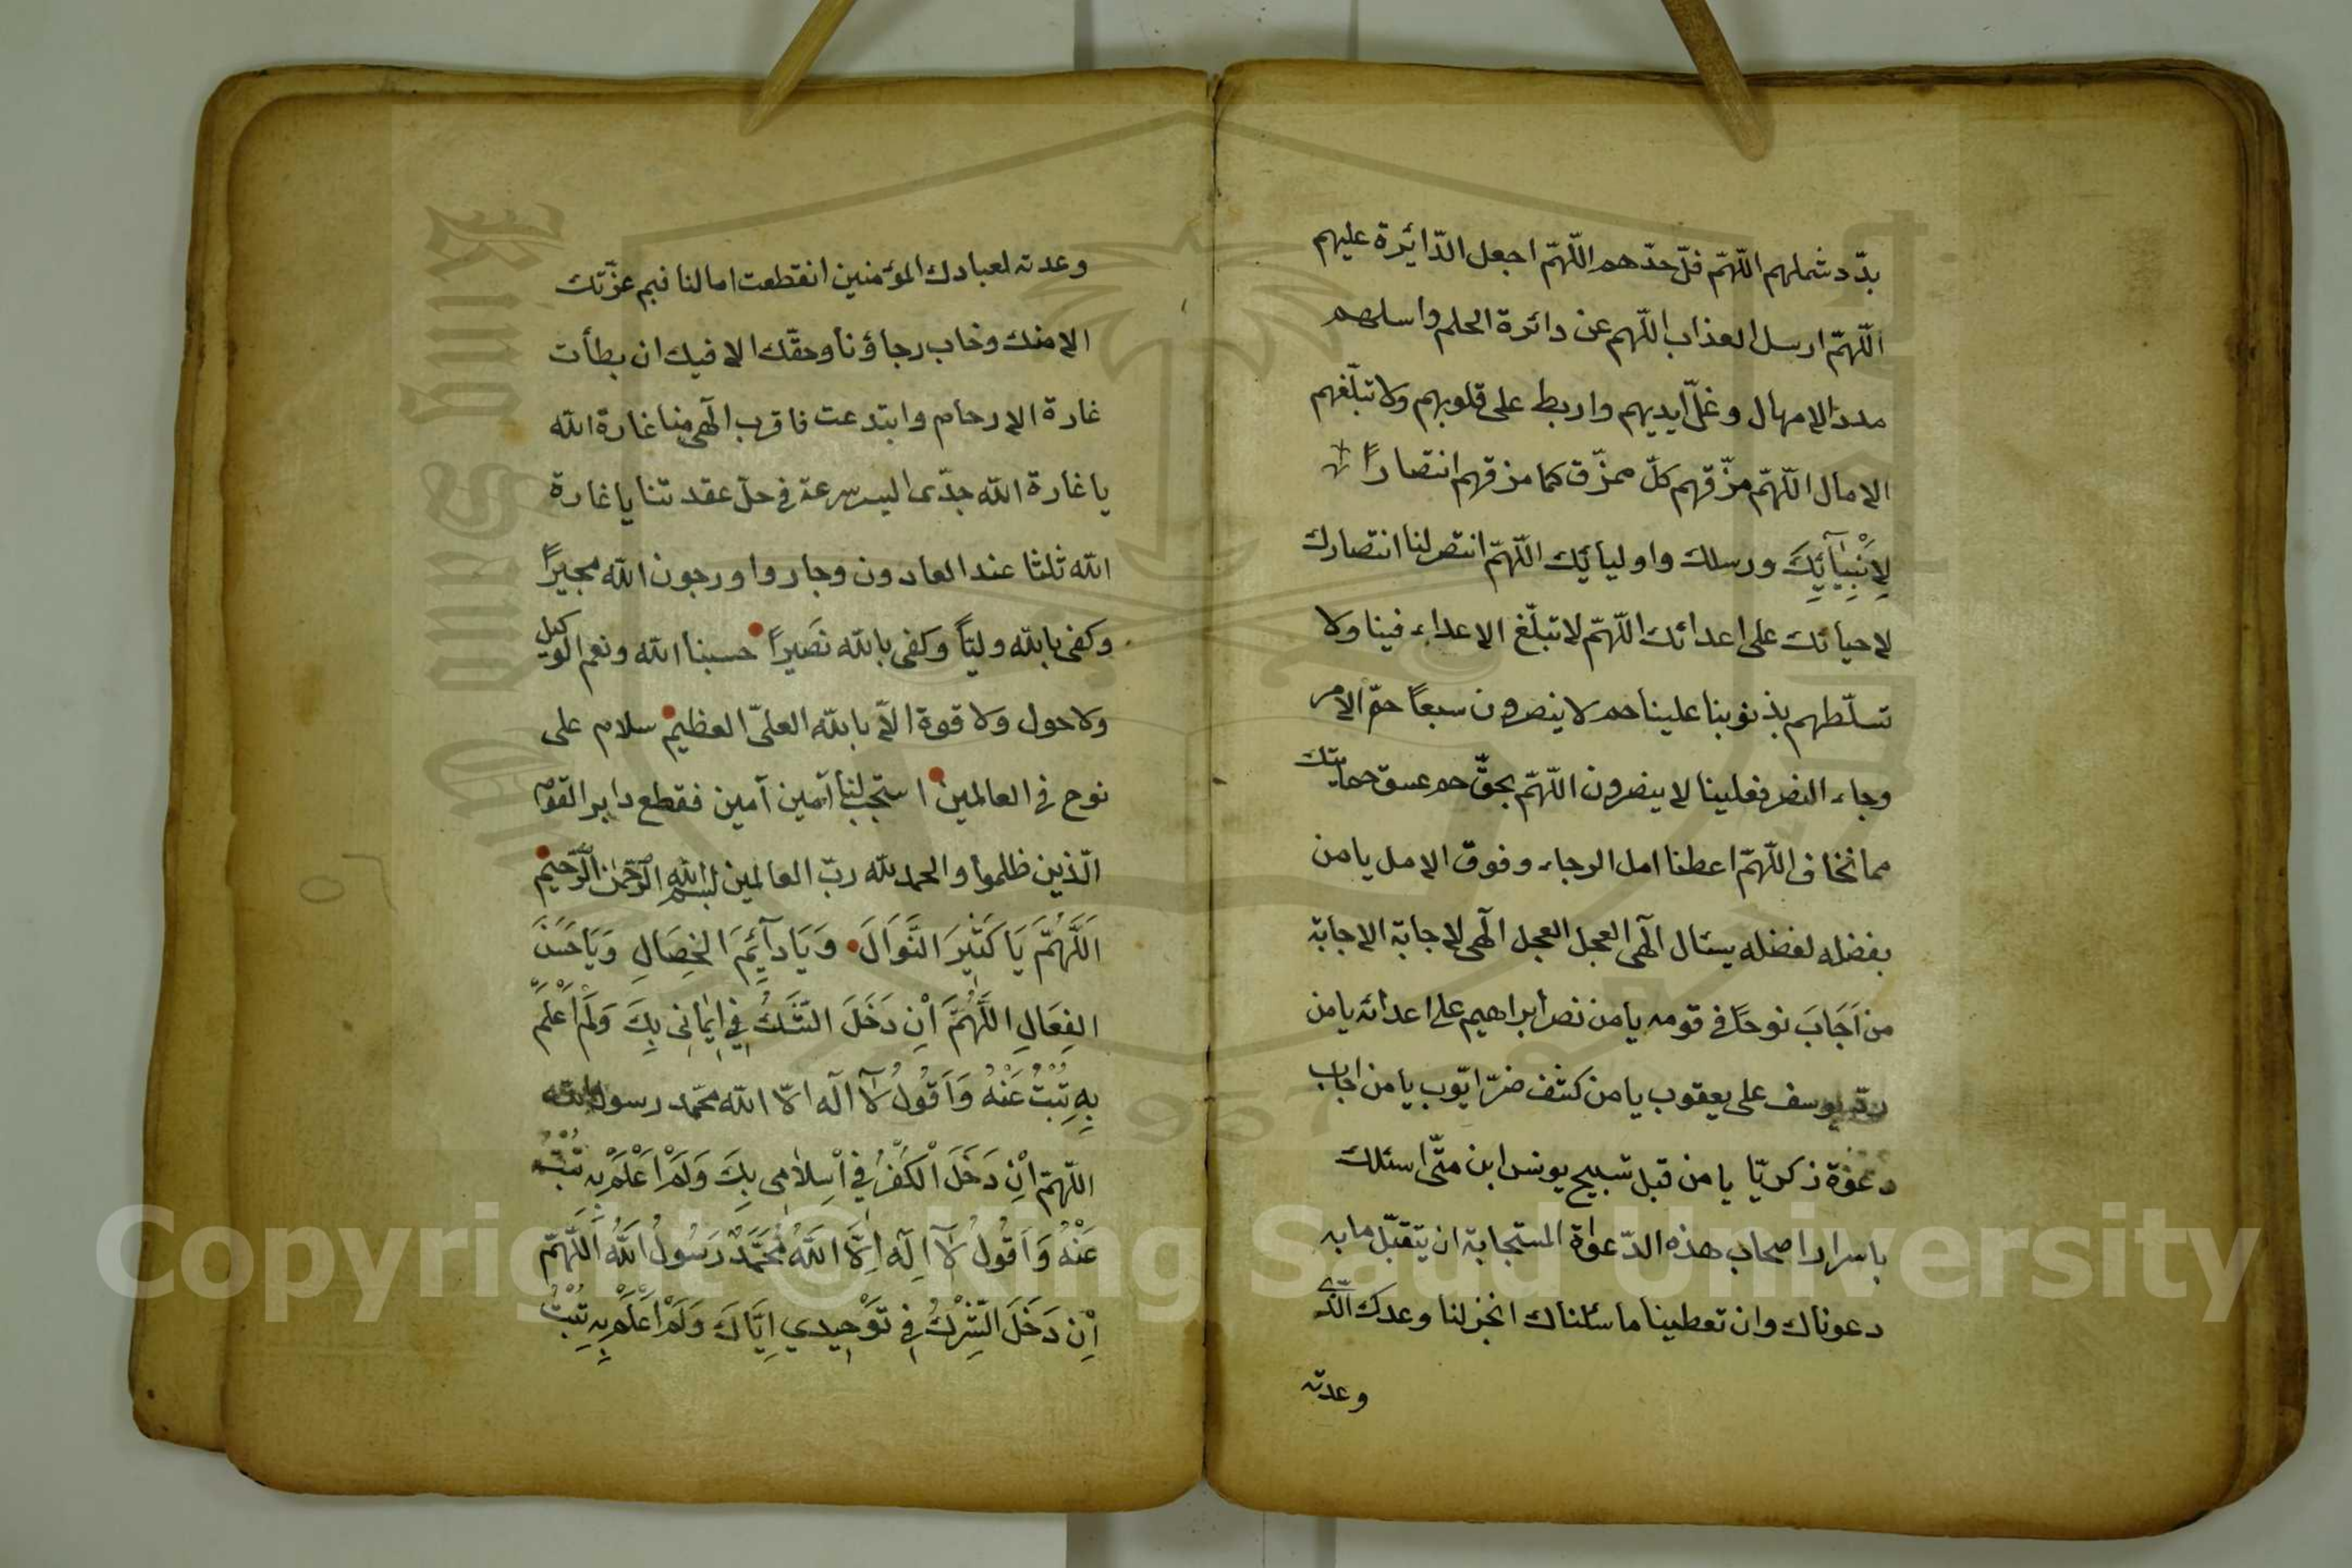 بدّد شملهم اللّهمّ فلّ حدّهم اللّهمّ اجعل الدّائرة عليهم
اللّهمّ ارسل العذاب اللّهم عن دائرة الحلم واسلبهم
مدد الامهال وغلّ ايديهم واربط على قلوبهم ولا تبلّغهم
الامال اللّهمّ مزّقهم كلّ ممزّق كما مزقهم انتصارًا
لِاَنْبِيَآئِكَ ورسلك واوليائك اللّهمّ انتصر لنا انتصارك
لاحبائك على اعدائك اللّهمّ لا تبلّغ الاعداء فينا ولا
تسلّطهم بذنوبنا علينا حم لا ينصرون سبعاً حمّ الامر
وجاء النصر فعلينا لا ينصرون اللّهمّ بحقّ حم عسق حمايتك
مما نخاف اللّهمّ اعطنا امل الرجاء وفوق الامل يا من
بفضله لفضله يسئال الٓهى العجل العجل الٓهى الاجابة الاجابة
من اَجَابَ نوحًا فى قومه يا من نصر ابراهيم على اعدائه يا من
ردّ يوسف على يعقوب يا من كشف ضرّ ايّوب يا من اجاب
دعوة زكريّا يا من قبل تسبيح يونس ابن متّى اسئلك
باسرار اصحاب هذه الدّعوٰة المستجابة ان يتقبّل ما به
دعوناك وان تعطينا ما سئلناك انجز لنا وعدك الّذى
وعدته
وعدته لعبادك المؤمنين انقطعت امالنا فبم عزّتك
الا منك وخاب رجاؤنا وحقّك الا فيك ان بطأت
غارة الارحام وابتدعت فاقرب الٓهى منا غارة الله
يا غارة الله جدّى السير سرعة فى حلّ عقدتنا يا غارة
الله ثلثا عند العادون وجاروا ورجون الله مجيرًا
وكفى بالله وليّاً وكفى بالله نَصيرًا حسبنا الله ونعم الوكيل
ولا حول ولا قوة الاّ بالله العلىّ العظيم سلام على
نوح فى العالمين استجب لنا آمين آمين فقطع دابر القوم
الّذين ظلموا والحمد لله ربّ العالمين بسم الله الرّحمٰن الرّحيم
اَللَّهُمَّ يَا كَثِيرَ النَّوَالَ وَيَا دآئِمَ الخِصَالِ وَيَا حَسَنَ
الفِعَالِ اللَّهُمَّ اْنِ دَخَلَ الشَّكُّ فِي اِيمَانِى بِكَ وَلَمْ اَعْلَمْ
بِهِ تُبْتُ عَنْهُ وَاَقُولُ لآ اله الاّ الله محمّد رسول الله
اللّهمّ اْنِ دَخَلَ الْكُفْرُ فِي اْسِلاَمِى بِكَ وَلَمْ اَعْلَمْ بِه تُبْتُ
عَنْهُ وَاَقُولُ لآ اِلَه اِلاَّ اللَّهُ مُحَمَّدٌ رَسُولُ اللَّهُ اَللَّهمّ
اْنِ دَخَلَ الشِّرْكُ فِي تَوْحِيدِي اِيَّاكَ وَلَمْ اَعْلَمْ بِه تُبْتُ
٥٦
Copyright © King Saud University
King Saud University
1957